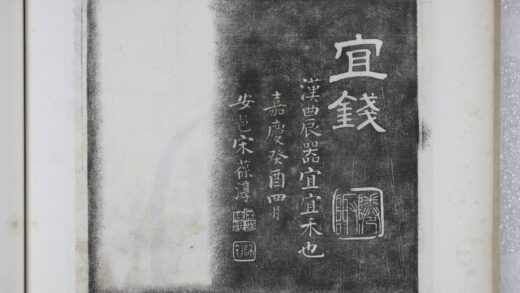 宜錢
漢農器宜宜禾也
嘉慶癸酉四月
安邑宋葆淳